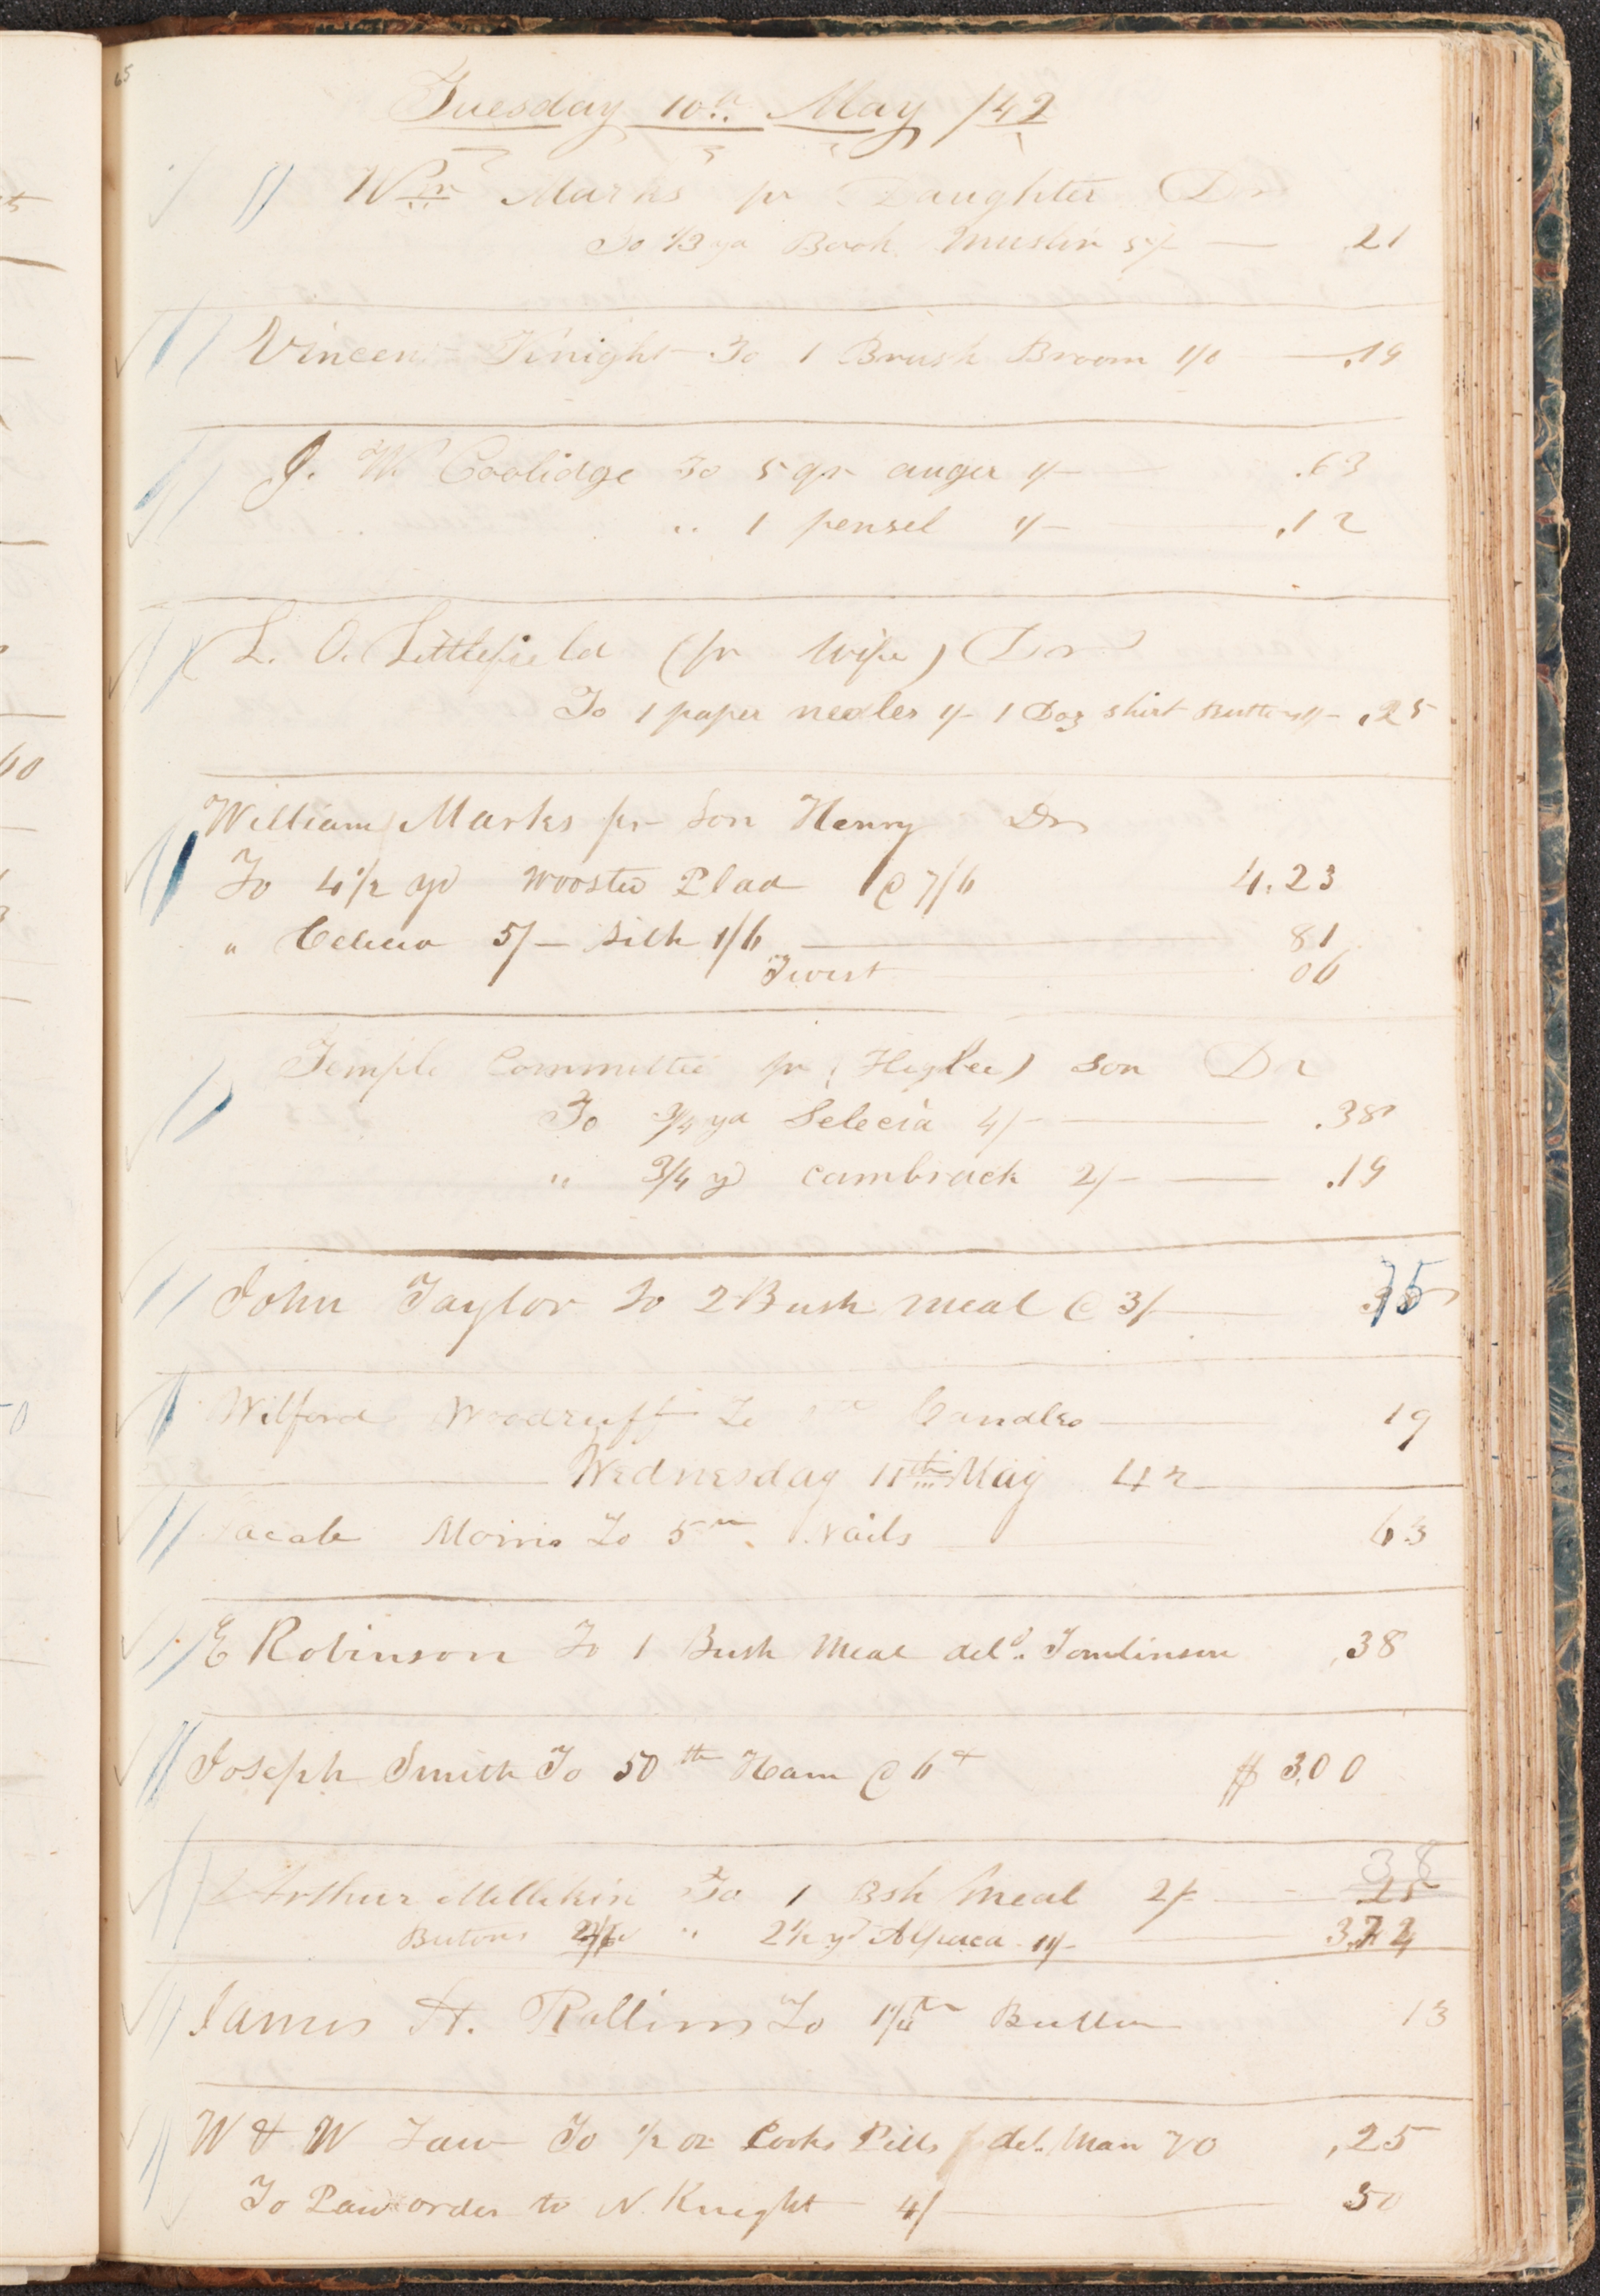 65
Tuesday 10th May /42
Wm Marks pr Daughter Dr
To 1/3 yd Book Muslin 5/ .21
Vincent Knight To 1 Brush Broom 1/6 .19
J. W Coolidge To 5 qr auger 1/- .63
" 1 pensel 1/- .12
L. O. Littlefield (pr Wife) Dr
To 1 paper nedles 1/- 1 Doz shirt Buttons 1/- .25
William Marks pr Son Henry Dr
To 4 1/2 yd Woosted Plad @ 7/6 4.23
" 5/- Silk 1/6 81
Twist 06
Temple Committee pr (Higbee) Son Dr
To 3/4 yd Selecia 4/- .38
" 3/4 yd cambrack 2/- .19
John Taylor To 2 Bush Meal @ 3/- 75
Wilford Woodruff To Candles 19
Wednesday 11th May 42
Jacob Morris To 5 lb Nails 63
E Robinson To 1 Bush Meal deld. Tomlinson .38
Joseph Smith To 50 lb Ham @ 6c $ 3,00
Arthur Millikin To 1 Bsh Meal 2/- 38
Butons " 2 1/2 yd Alpaca 11/-
James H. Rollins To 1 1/4 lb Butter 13
W & W Law To 1/2 oz Cooks Pills del. Man ,25
To Law order to N. Knight 4/ 50